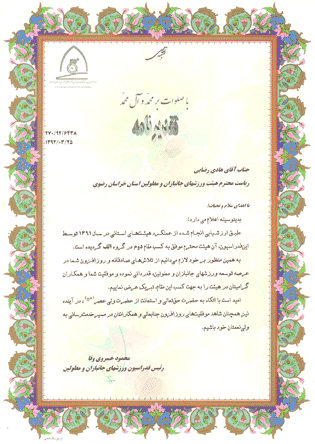 با صلوات بر محمد و آل محمد
تقدیرنامه
۲۲۰/۹۲/۶۲۳۸
۱۳۹۲/۰۳/۲۵
جناب آقای هادی رضایی
ریاست محترم هیئت ورزشهای جانبازان و معلولین استان خراسان رضوی
با اهدای سلام و تحیات؛
بدینوسیله اعلام می دارد:
طبق ارزشیابی انجام شده از عملکرد هیئتهای استانی در سال ۱۳۹۱ توسط
این فدراسیون، آن هیئت محترم موفق به کسب مقام دوم در گروه الف گردیده است.
به همین منظور بر خود لازم می دانیم از تلاش‌های صادقانه و روزافزون شما در
عرصه توسعه ورزشهای جانبازان و معلولین، قدردانی نموده و موفقیت شما و همکاران
گرامیتان در هیئت را به جهت کسب این مقام، تبریک عرض نماییم.
امید است با اتکاء به حضرت حق‌تعالی و استعانت از حضرت ولی عصر در آینده
نیز همچنان شاهد موفقیت‌های روزافزون جنابعالی و همکارانتان در مسیر خدمت‌رسانی به
ولی‌نعمتان خود باشیم.
محمود خسروی وفا
رئیس فدراسیون ورزشهای جانبازان و معلولین